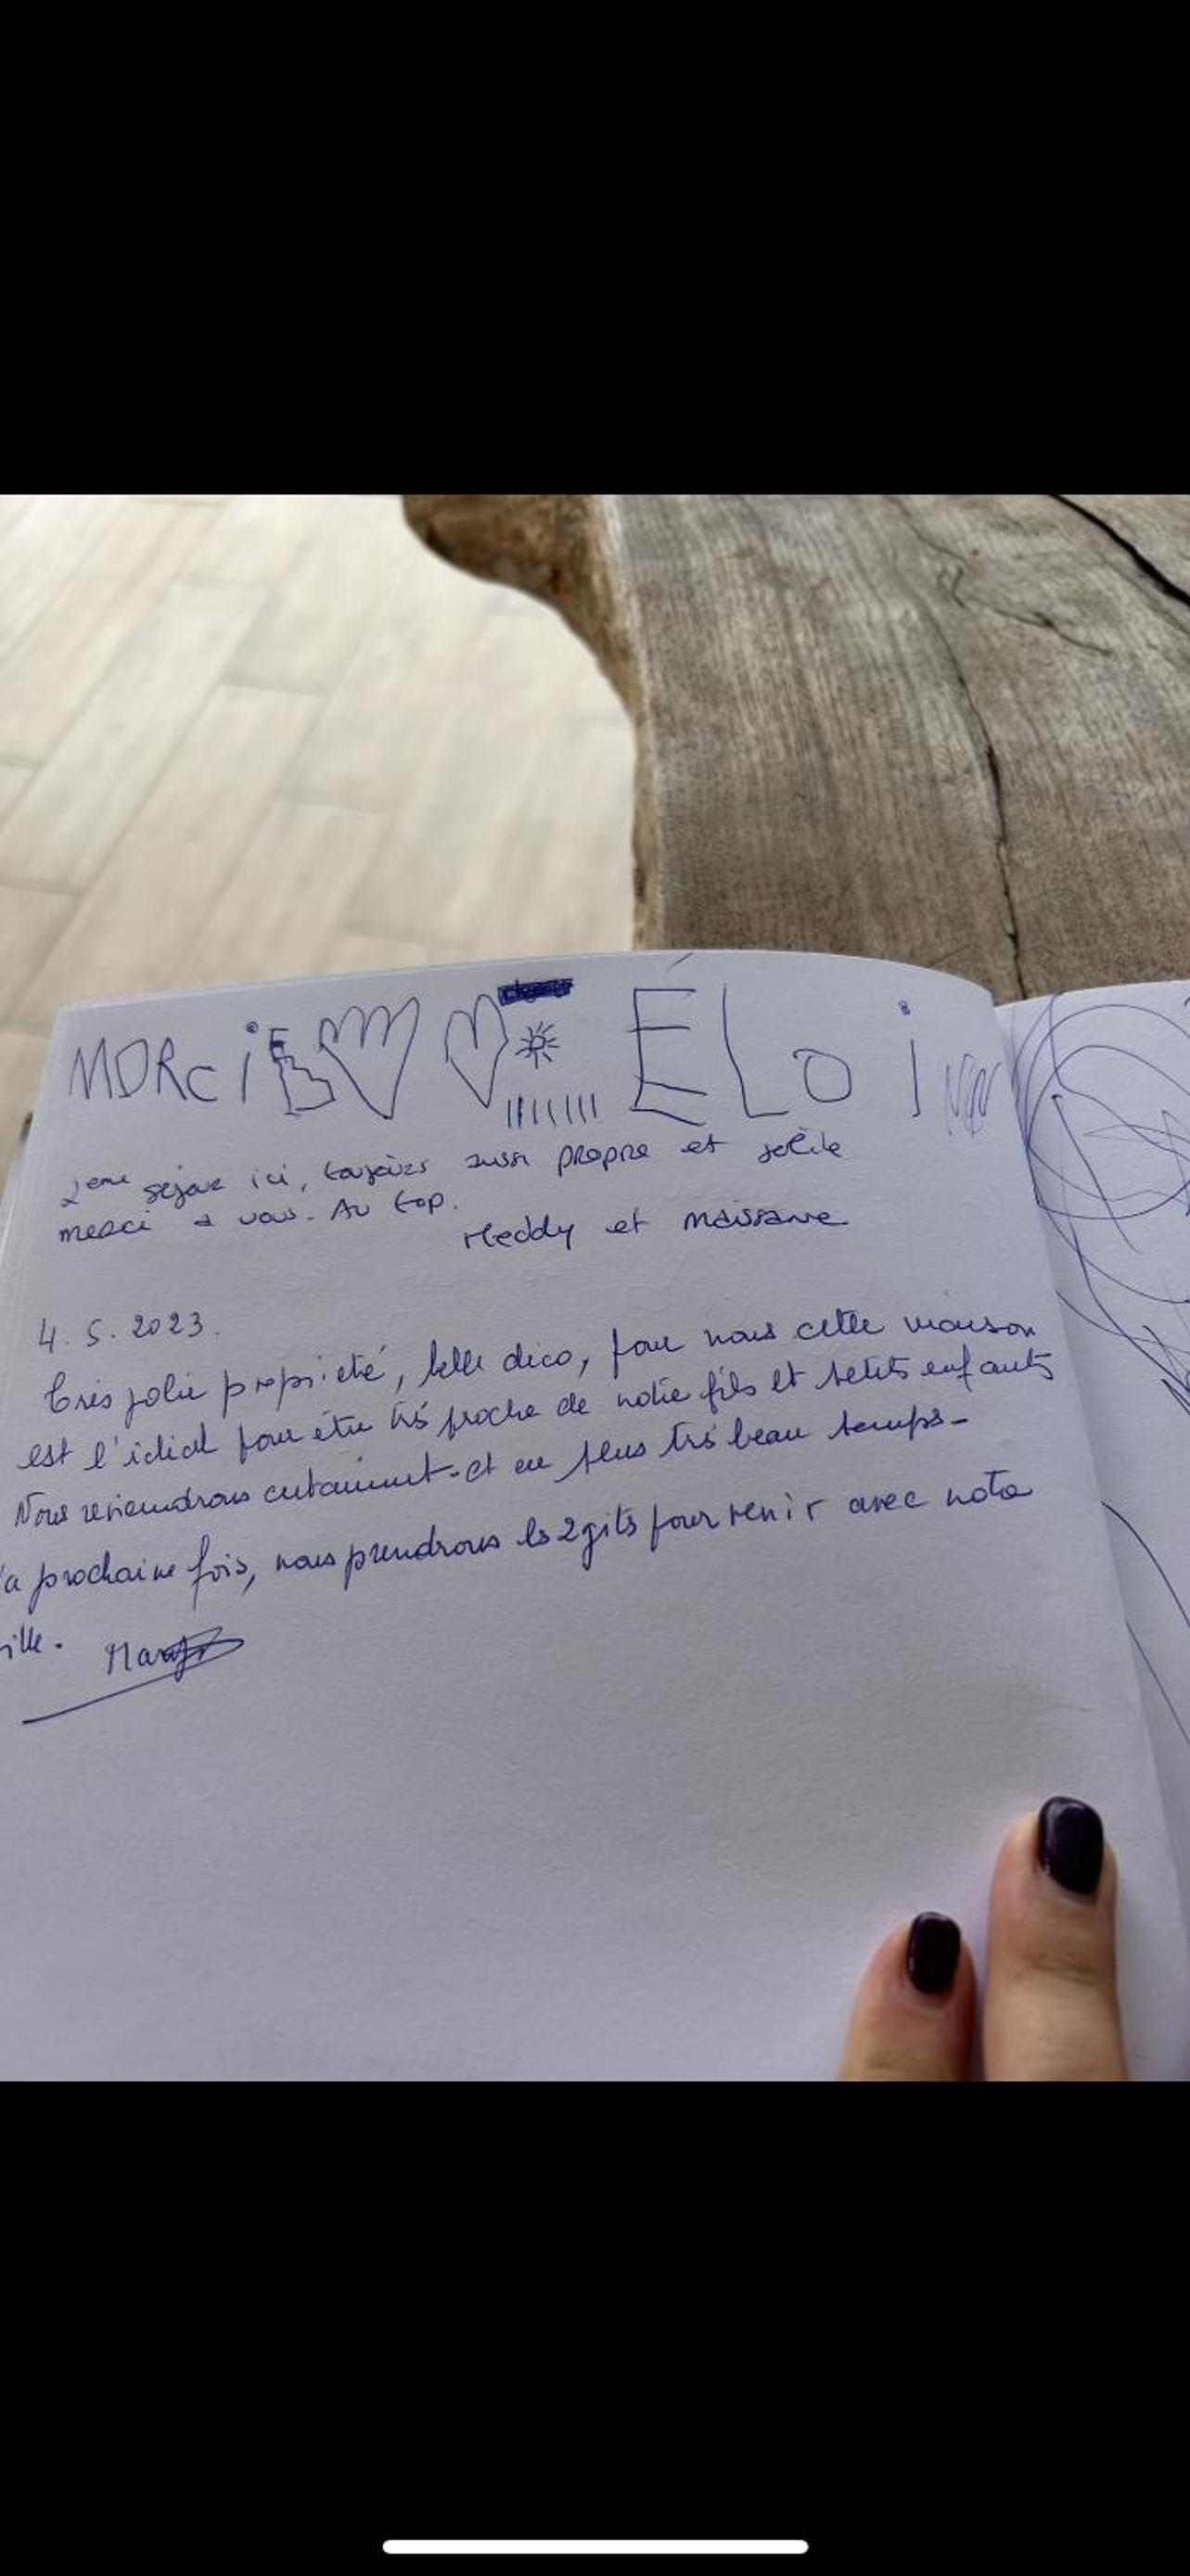 MERci ÉLoi
2eme séjour ici, toujours aussi propre et jolie
merci a vous. Au top.
Meddy et Maissane
4.5.2023.
Très jolie propriété, belle déco, pour nous cette maison
est l'idéal pour être très proche de notre fils et petits enfants
Nous reviendrons certainement. et en plus très beau temps-
la prochaine fois, nous prendrons les 2 gits pour venir avec notre
ille.